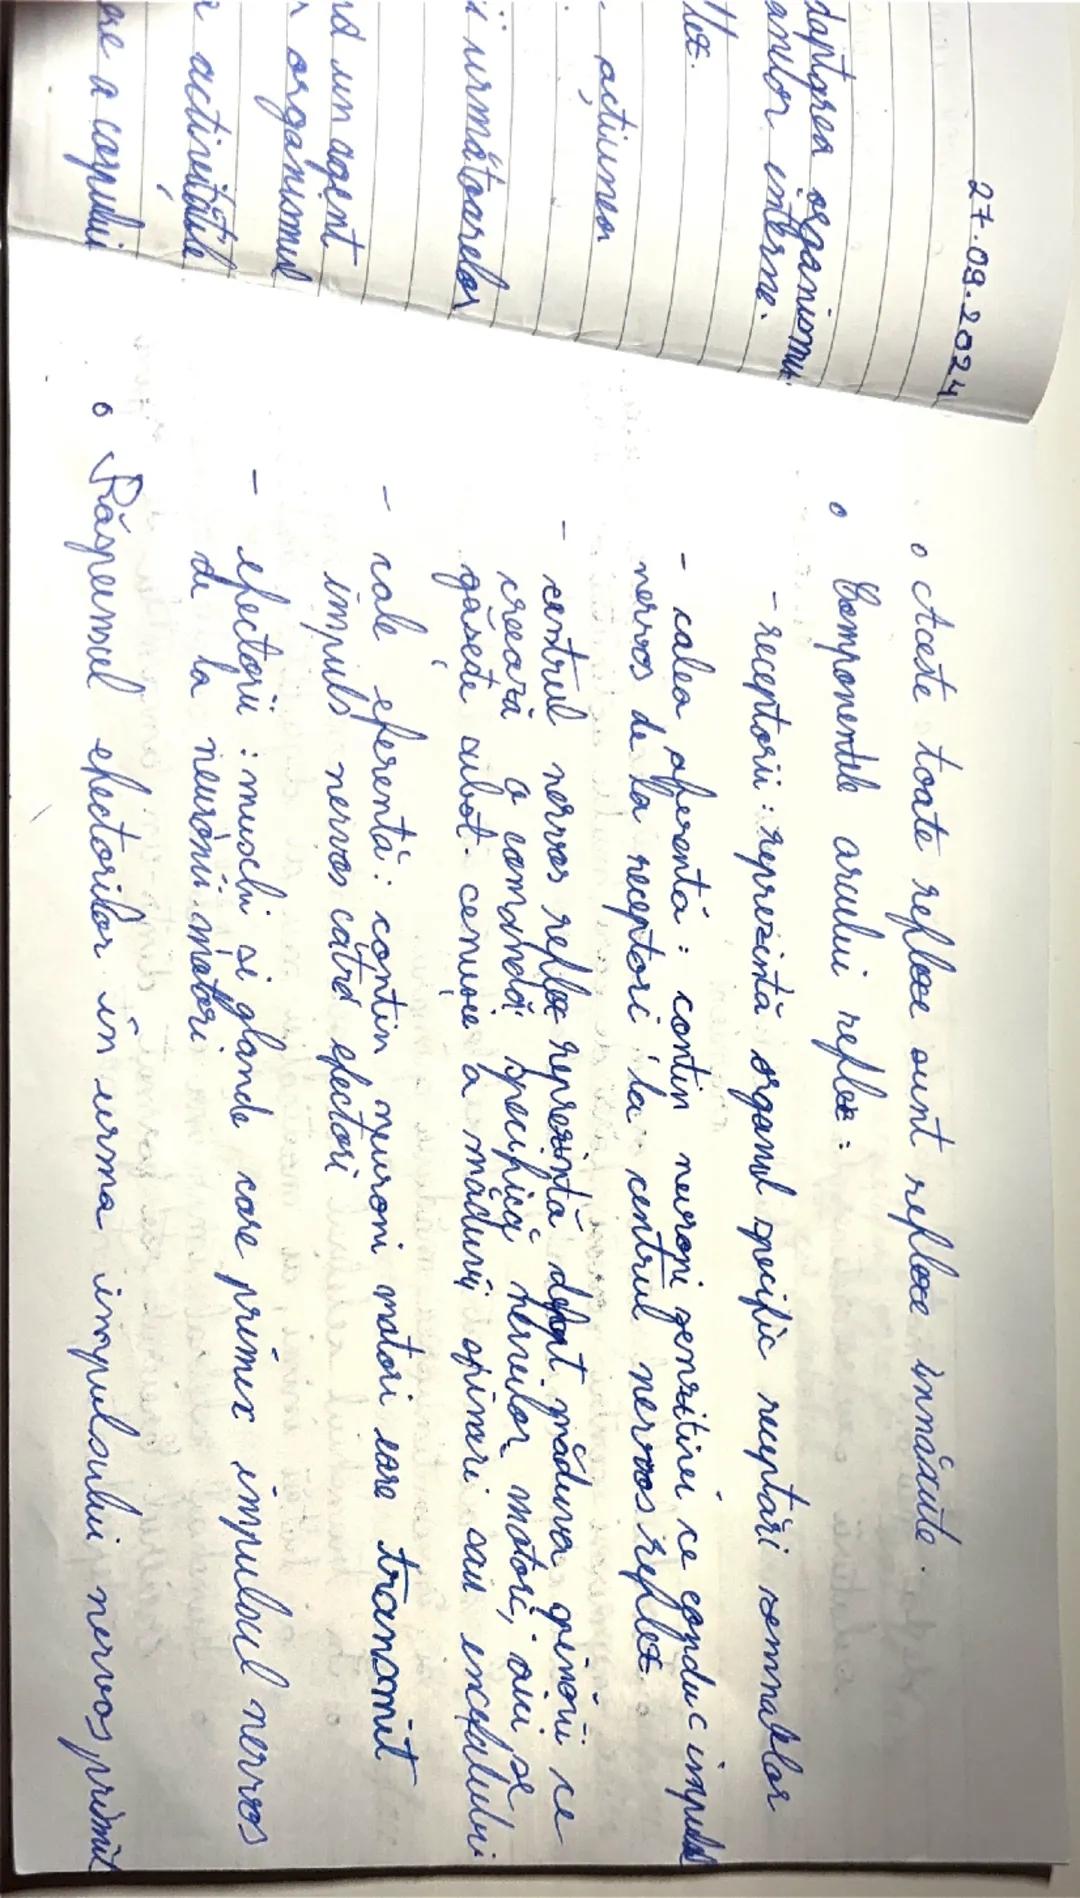 27.09.2024
daptarea organismu-
anilor interne.
lex.
- acțiunea
i următoarelor
nd un agent
organismul
activitățile
are a corpului
o Aceste toate reflexe sunt reflexe înnăscute.
o Componentele arcului reflex:
- receptorii: reprezintă organul specific receptări semnalelor
- calea aferentă: conțin neuroni senzitivi ce conduc impuls
nervos de la receptori la centrul nervos reflex
- centrul nervos reflex reprezintă măduva spinării ce
creează o comandă specifică nervilor motori, aici se
găsește subst. cenușie a măduvii spinari sau encefalului
- cale eferentă: conțin neuroni motori care transmit
impuls nervos către efectori
- efectorii: muschi și glande care primex impulsul nervos
de la neuronii motori
o Răspunsul efectorilor în urma impulsului nervos primit